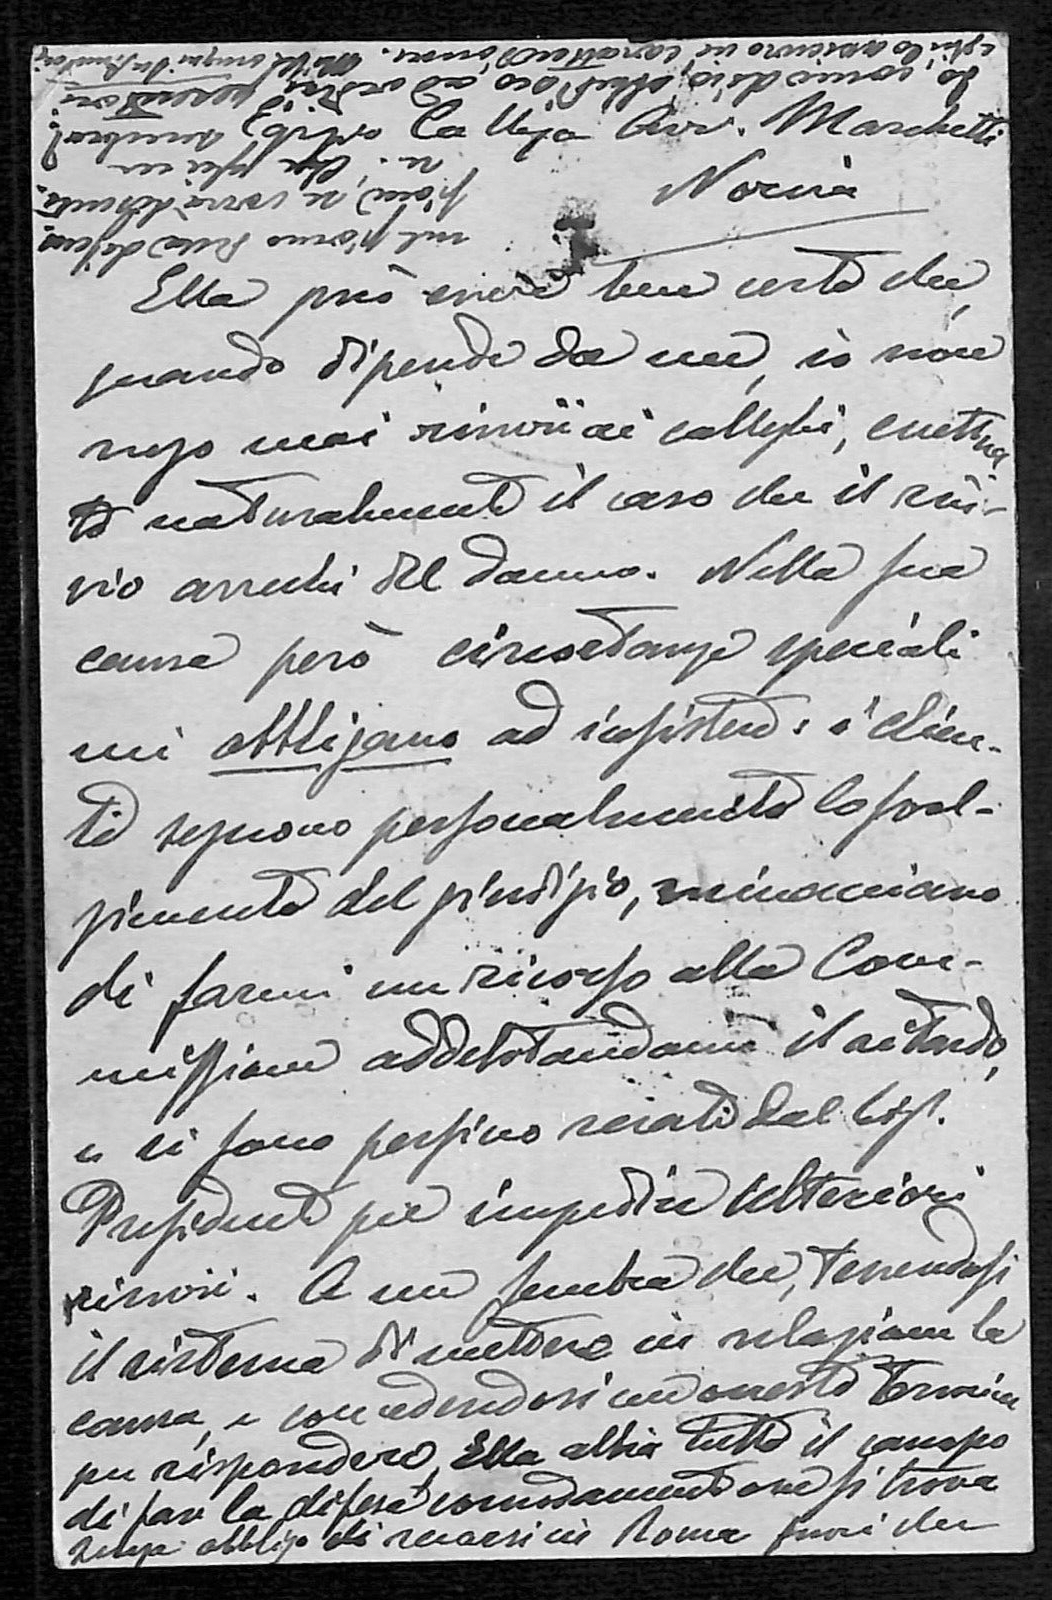 Collega Avv. Marchetti
Norcia
Ella può essere ben certo che,
quando dipende da me, io non
nego mai rinvii ai colleghi, eccettua
to naturalmente il caso che il rin-
vio arrechi del danno. Nella sua
causa però circostanze speciali
mi obbligano ad insistere: i clien-
ti seguono personalmente lo svol-
gimento del giudizio, minacciano
di farmi un ricorso alla Com-
missione addebitandomi il ritardo,
e si sono persino recati dal Sig.
Presidente per impedire ulteriori
rinvii. A me sembra che, tenendosi
il sistema di mettere in relazione la
causa, e concedendosi un onesto termine
per rispondere, Ella abbia tutto il campo
di far la difesa comodamente ove si trova
senza obbligo di recarsi in Roma fuori che
nel giorno della discus-